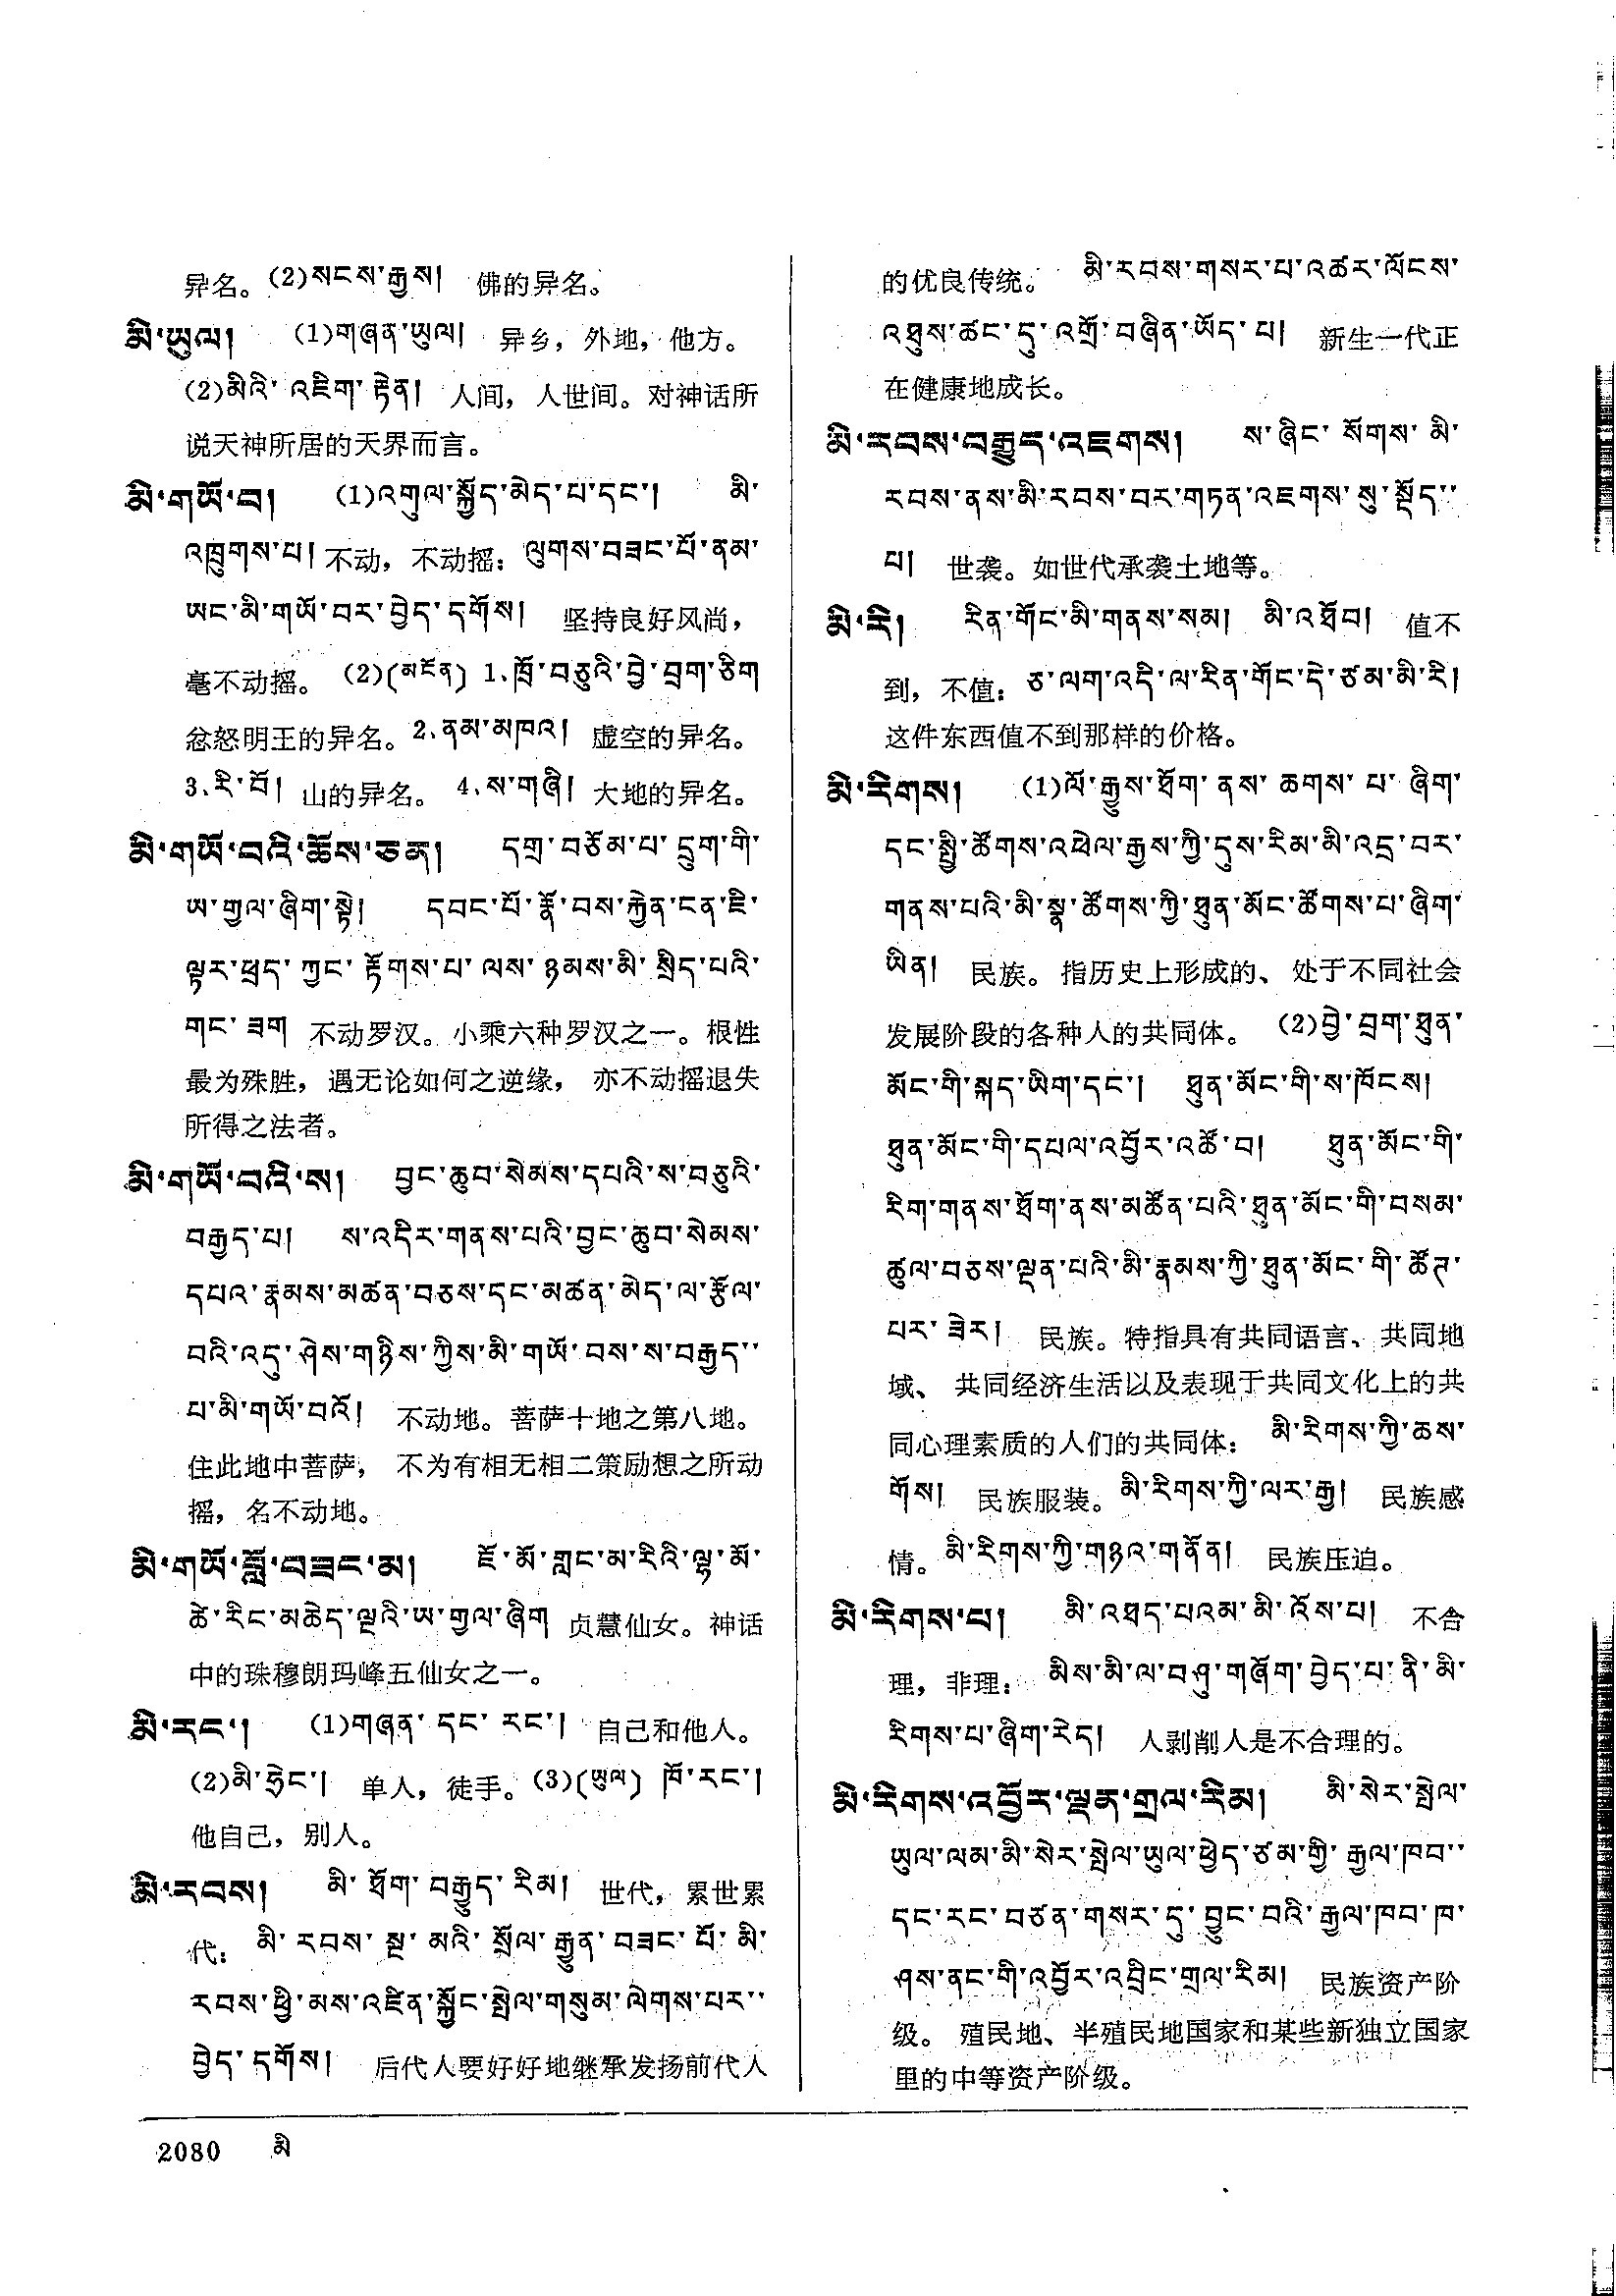 异名。(2)སངས་རྒྱས། 佛的异名。
མི་ཡུལ། (1)གཞན་ཡུལ། 异乡，外地，他方。
(2)མིའི་འཇིག་རྟེན། 人间，人世间。对神话所
说天神所居的天界而言。
མི་གཡོ་བ། (1)འགུལ་སྐྱོད་མེད་པ་དང་། མི་
འཁྲུགས་པ། 不动，不动摇：ལུགས་བཟང་པོ་ནམ་
ཡང་མི་གཡོ་བར་བྱེད་དགོས། 坚持良好风尚，
毫不动摇。(2)(མངོན) 1.ཁྲོ་བཅུའི་བྱེ་བྲག་ཅིག
忿怒明王的异名。2.ནམ་མཁའ། 虚空的异名。
3.རི་བོ། 山的异名。 4.ས་གཞི། 大地的异名。
མི་གཡོ་བའི་ཆོས་ཅན། དགྲ་བཅོམ་པ་དྲུག་གི་
ཡ་གྱལ་ཞིག་སྟེ། དབང་པོ་རྣོ་བས་རྐྱེན་ངན་ཇི་
ལྟར་ཕྲད་ཀྱང་རྟོགས་པ་ལས་ཉམས་མི་སྲིད་པའི་
གང་ཟག 不动罗汉。小乘六种罗汉之一。根性
最为殊胜，遇无论如何之逆缘，亦不动摇退失
所得之法者。
མི་གཡོ་བའི་ས། བྱང་ཆུབ་སེམས་དཔའི་ས་བཅུའི་
བརྒྱད་པ། ས་འདིར་གནས་པའི་བྱང་ཆུབ་སེམས་
དཔའ་རྣམས་མཚན་བཅས་དང་མཚན་མེད་ལ་རྩོལ་
བའི་འདུ་ཤེས་གཉིས་ཀྱིས་མི་གཡོ་བས་ས་བརྒྱད་་
པ་མི་གཡོ་བའོ། 不动地。菩萨十地之第八地。
住此地中菩萨，不为有相无相二策励想之所动
摇，名不动地。
མི་གཡོ་བློ་བཟང་མ། ཇོ་མོ་གླང་མ་རིའི་ལྷ་མོ་
ཚེ་རིང་མཆེད་ལྔའི་ཡ་གྱལ་ཞིག 贞慧仙女。神话
中的珠穆朗玛峰五仙女之一。
མི་རང་། (1)གཞན་དང་རང་། 自己和他人。
(2)མི་ཧྲེང་། 单人，徒手。(3)(ཡུལ) ཁོ་རང་།
他自己，别人。
མི་རབས། མི་ཐོག་བརྒྱུད་རིམ། 世代，累世累
代：མི་རབས་སྔ་མའི་སྲོལ་རྒྱུན་བཟང་པོ་མི་
རབས་ཕྱི་མས་འཛིན་སྐྱོང་སྤེལ་གསུམ་ལེགས་པར་་
བྱེད་དགོས། 后代人要好好地继承发扬前代人
的优良传统。 མི་རབས་གསར་པ་འཚར་ལོངས་
འཐུས་ཚང་དུ་འགྲོ་བཞིན་ཡོད་པ། 新生一代正
在健康地成长。
མི་རབས་བརྒྱུད་འཇགས། ས་ཞིང་སོགས་མི་
རབས་ནས་མི་རབས་བར་གཏན་འཇགས་སུ་སྤྲོད་་
པ། 世袭。如世代承袭土地等。
མི་རི། རིན་གོང་མི་གནས་སམ། མི་འཐོབ། 值不
到，不值：ཅ་ལག་འདི་ལ་རིན་གོང་དེ་ཙམ་མི་རི།
这件东西值不到那样的价格。
མི་རིགས། (1)ལོ་རྒྱུས་ཐོག་ནས་ཆགས་པ་ཞིག་
དང་སྤྱི་ཚོགས་འཕེལ་རྒྱས་ཀྱི་དུས་རིམ་མི་འདྲ་བར་
གནས་པའི་མི་སྣ་ཚོགས་ཀྱི་ཐུན་མོང་ཚོགས་པ་ཞིག་
ཡིན། 民族。指历史上形成的、处于不同社会
发展阶段的各种人的共同体。 (2)བྱེ་བྲག་ཐུན་
མོང་གི་སྐད་ཡིག་དང་། ཐུན་མོང་གི་ས་ཁོངས།
ཐུན་མོང་གི་དཔལ་འབྱོར་འཚོ་བ། ཐུན་མོང་གི་
རིག་གནས་ཐོག་ནས་མཚོན་པའི་ཐུན་མོང་གི་བསམ་
ཚུལ་བཅས་ལྡན་པའི་མི་རྣམས་ཀྱི་ཐུན་མོང་གི་ཚོཊ་
པར་ཟེར། 民族。特指具有共同语言、共同地
域、共同经济生活以及表现于共同文化上的共
同心理素质的人们的共同体：མི་རིགས་ཀྱི་ཆས་
གོས། 民族服装。མི་རིགས་ཀྱི་ལར་རྒྱ། 民族感
情。མི་རིགས་ཀྱི་གཉའ་གནོན། 民族压迫。
མི་རིགས་པ། མི་འཐད་པའམ་མི་འོས་པ། 不合
理，非理：མིས་མི་ལ་བཤུ་གཞོག་བྱེད་པ་ནི་མི་
རིགས་པ་ཞིག་རེད། 人剥削人是不合理的。
མི་རིགས་འབྱོར་ལྡན་གྲལ་རིམ། མི་སེར་སྤེལ་
ཡུལ་ལམ་མི་སེར་སྤེལ་ཡུལ་ཕྱེད་ཙམ་གྱི་རྒྱལ་ཁབ་་
དང་རང་བཙན་གསར་དུ་བྱུང་བའི་རྒྱལ་ཁབ་ཁ་
ཤས་ནང་གི་འབྱོར་འབྲིང་གྲལ་རིམ། 民族资产阶
级。殖民地、半殖民地国家和某些新独立国家
里的中等资产阶级。
2080 མི